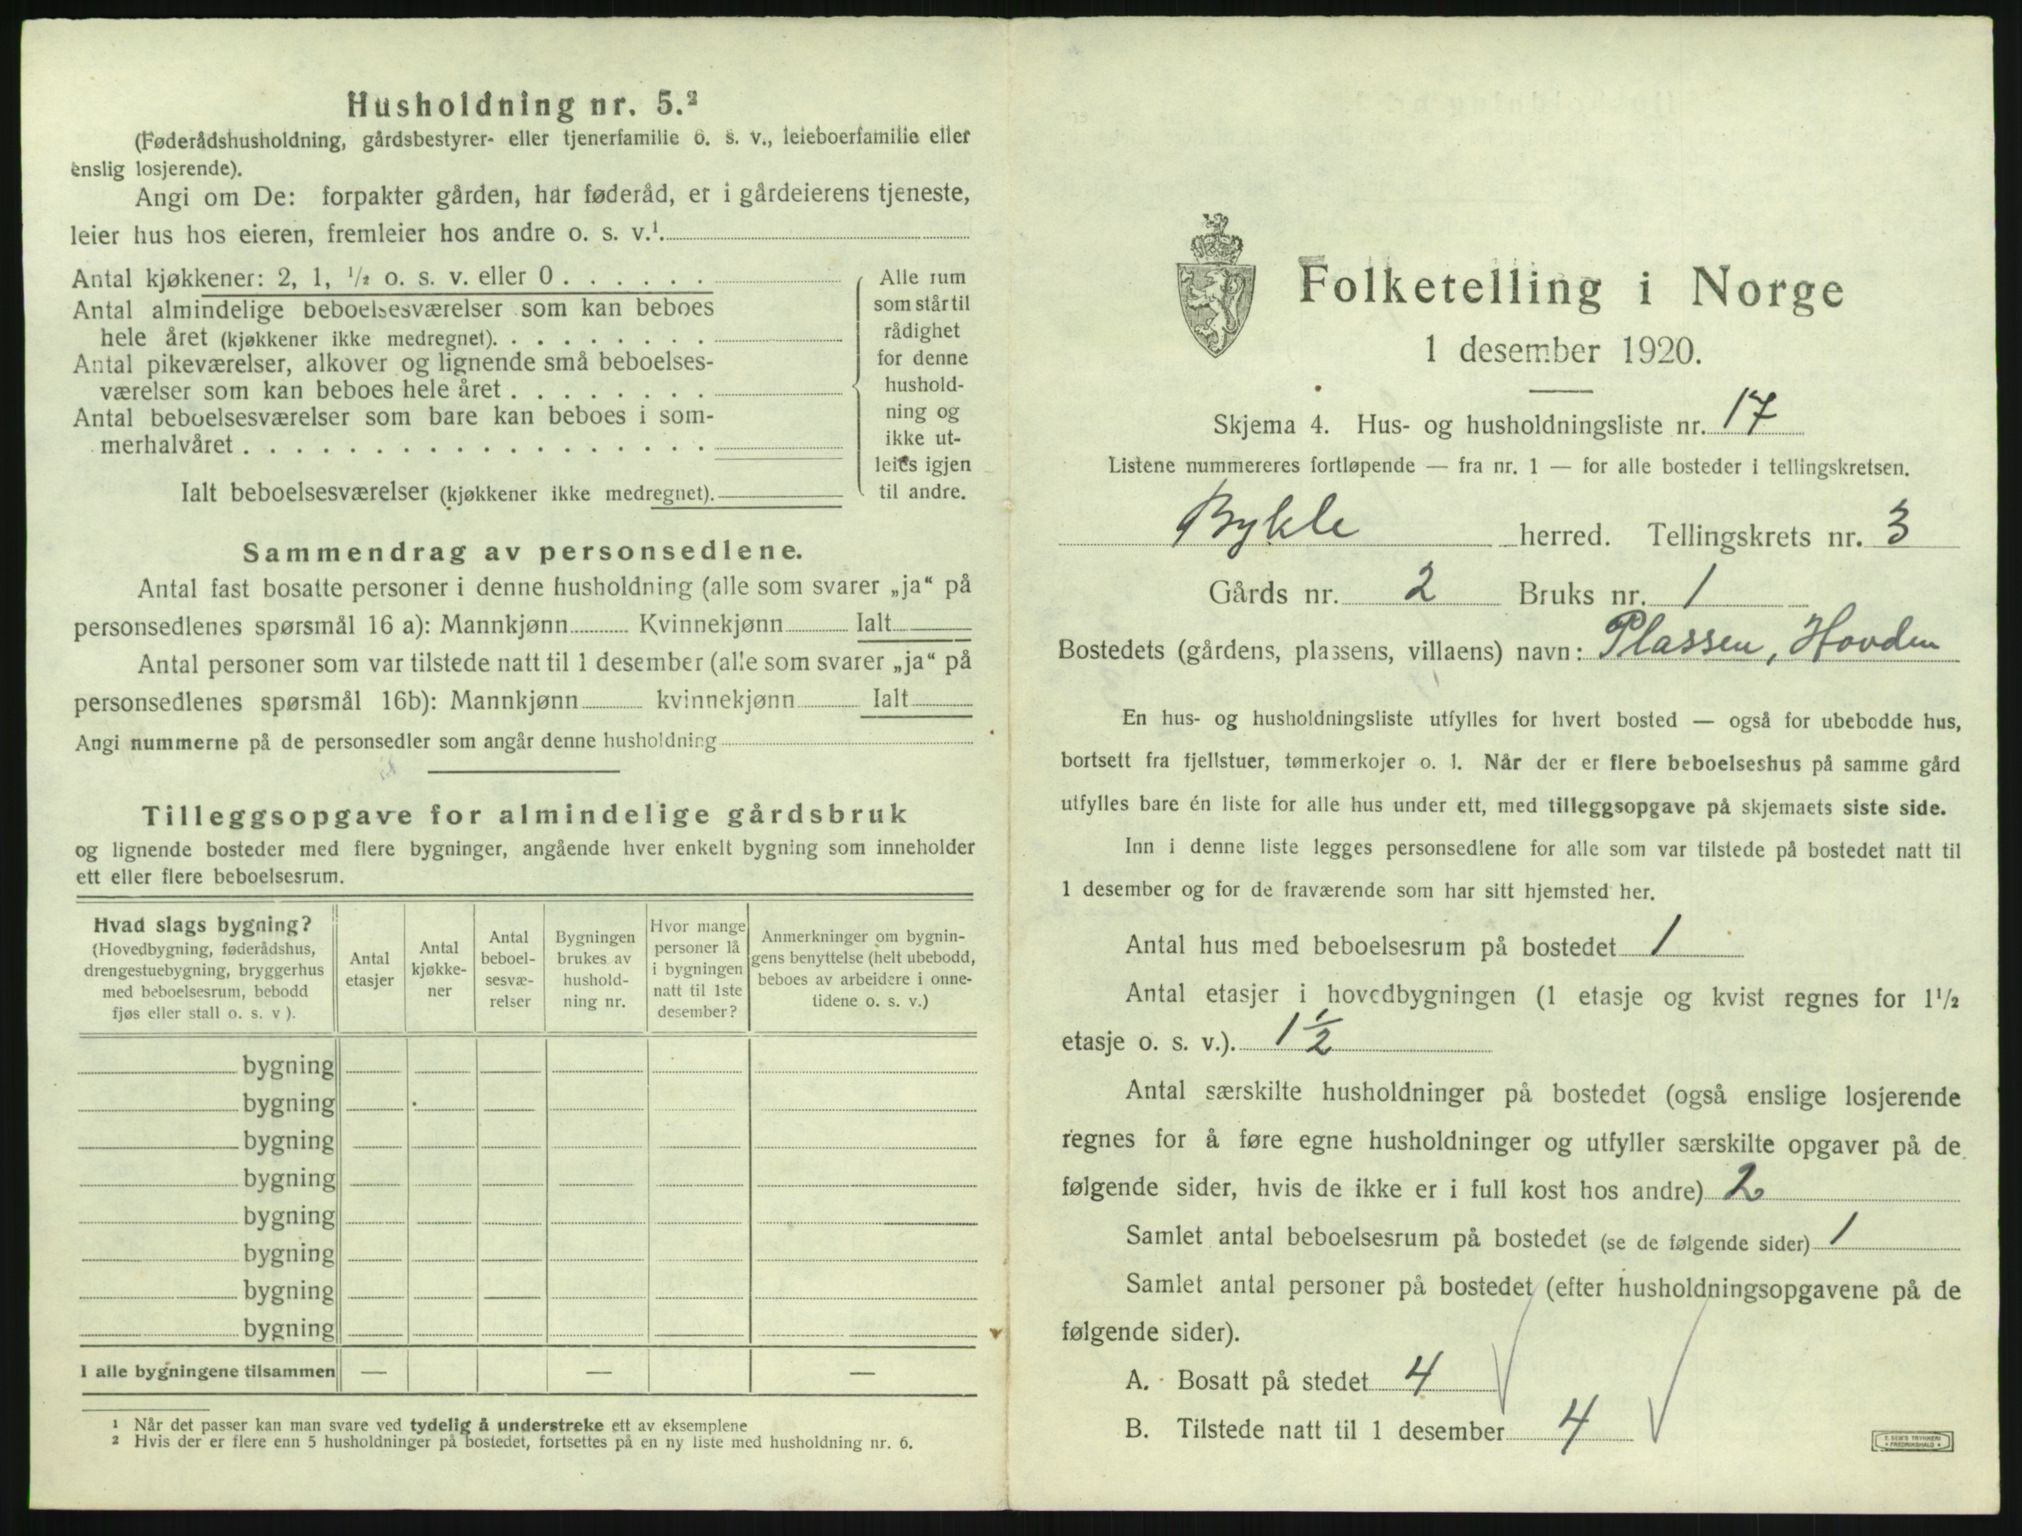 Husholdning nr. 5.²
(Føderådshusholdning, gårdsbestyrer- eller tjenerfamilie o. s. v., leieboerfamilie eller
enslig losjerende).
Angi om De: forpakter gården, har føderåd, er i gårdeierens tjeneste,
leier hus hos eieren, fremleier hos andre o. s. v.¹
Antal kjøkkener: 2, 1, ½ o. s. v. eller 0 . . . . . .
Antal almindelige beboelsesværelser som kan beboes
hele året (kjøkkener ikke medregnet). . . . . . . . .
Antal pikeværelser, alkover og lignende små beboelses-
værelser som kan beboes hele året . . . . . . . .
Antal beboelsesværelser som bare kan beboes i som-
merhalvåret . . . . . . . . . . . . . . . . . .
Alle rum
som står til
rådighet
for denne
hushold-
ning og
ikke ut-
leies igjen
til andre.
Ialt beboelsesværelser (kjøkkener ikke medregnet).
Sammendrag av personsedlene.
Antal fast bosatte personer i denne husholdning (alle som svarer „ja“ på
personsedlenes spørsmål 16 a): Mannkjønn Kvinnekjønn Ialt
Antal personer som var tilstede natt til 1 desember (alle som svarer „ja“ på
personsedlenes spørsmål 16b): Mannkjønn kvinnekjønn Ialt
Angi nummerne på de personsedler som angår denne husholdning
Tilleggsopgave for almindelige gårdsbruk
og lignende bosteder med flere bygninger, angående hver enkelt bygning som inneholder
ett eller flere beboelsesrum.
Hvad slags bygning?
(Hovedbygning, føderådshus,
drengestuebygning, bryggerhus
med beboelsesrum, bebodd
fjøs eller stall o. s. v ).
Antal
etasjer
Antal
kjøkke-
ner
Antal
beboel-
sesvæ-
relser
Bygningen
brukes av
hushold-
ning nr.
Hvor mange
personer lå
i bygningen
natt til 1ste
desember?
Anmerkninger om bygnin-
gens benyttelse (helt ubebodd,
beboes av arbeidere i onne-
tidene o. s. v.)
bygning
bygning
bygning
bygning
bygning
bygning
bygning
bygning
I alle bygningene tilsammen — — —
¹ Når det passer kan man svare ved tydelig å understreke ett av eksemplene
² Hvis der er flere enn 5 husholdninger på bostedet, fortsettes på en ny liste med husholdning nr. 6.
Folketelling i Norge
1 desember 1920.
Skjema 4. Hus- og husholdningsliste nr. 17
Listene nummereres fortløpende — fra nr. 1 — for alle bosteder i tellingskretsen.
Bykle herred. Tellingskrets nr. 3
Gårds nr. 2 Bruks nr. 1
Bostedets (gårdens, plassens, villaens) navn: Plassen, Hovden
En hus- og husholdningsliste utfylles for hvert bosted — også for ubebodde hus,
bortsett fra fjellstuer, tømmerkojer o. l. Når der er flere beboelseshus på samme gård
utfylles bare én liste for alle hus under ett, med tilleggsopgave på skjemaets siste side.
Inn i denne liste legges personsedlene for alle som var tilstede på bostedet natt til
1 desember og for de fraværende som har sitt hjemsted her.
Antal hus med beboelsesrum på bostedet 1
Antal etasjer i hovedbygningen (1 etasje og kvist regnes for 1½
etasje o. s. v.). 1½
Antal særskilte husholdninger på bostedet (også enslige losjerende
regnes for å føre egne husholdninger og utfyller særskilte opgaver på de
følgende sider, hvis de ikke er i full kost hos andre) 2
Samlet antal beboelsesrum på bostedet (se de følgende sider) 1
Samlet antal personer på bostedet (efter husholdningsopgavene på de
følgende sider).
A. Bosatt på stedet 4
B. Tilstede natt til 1 desember 4
E. SEM'S TRYKKERI
FREDRIKSHALD